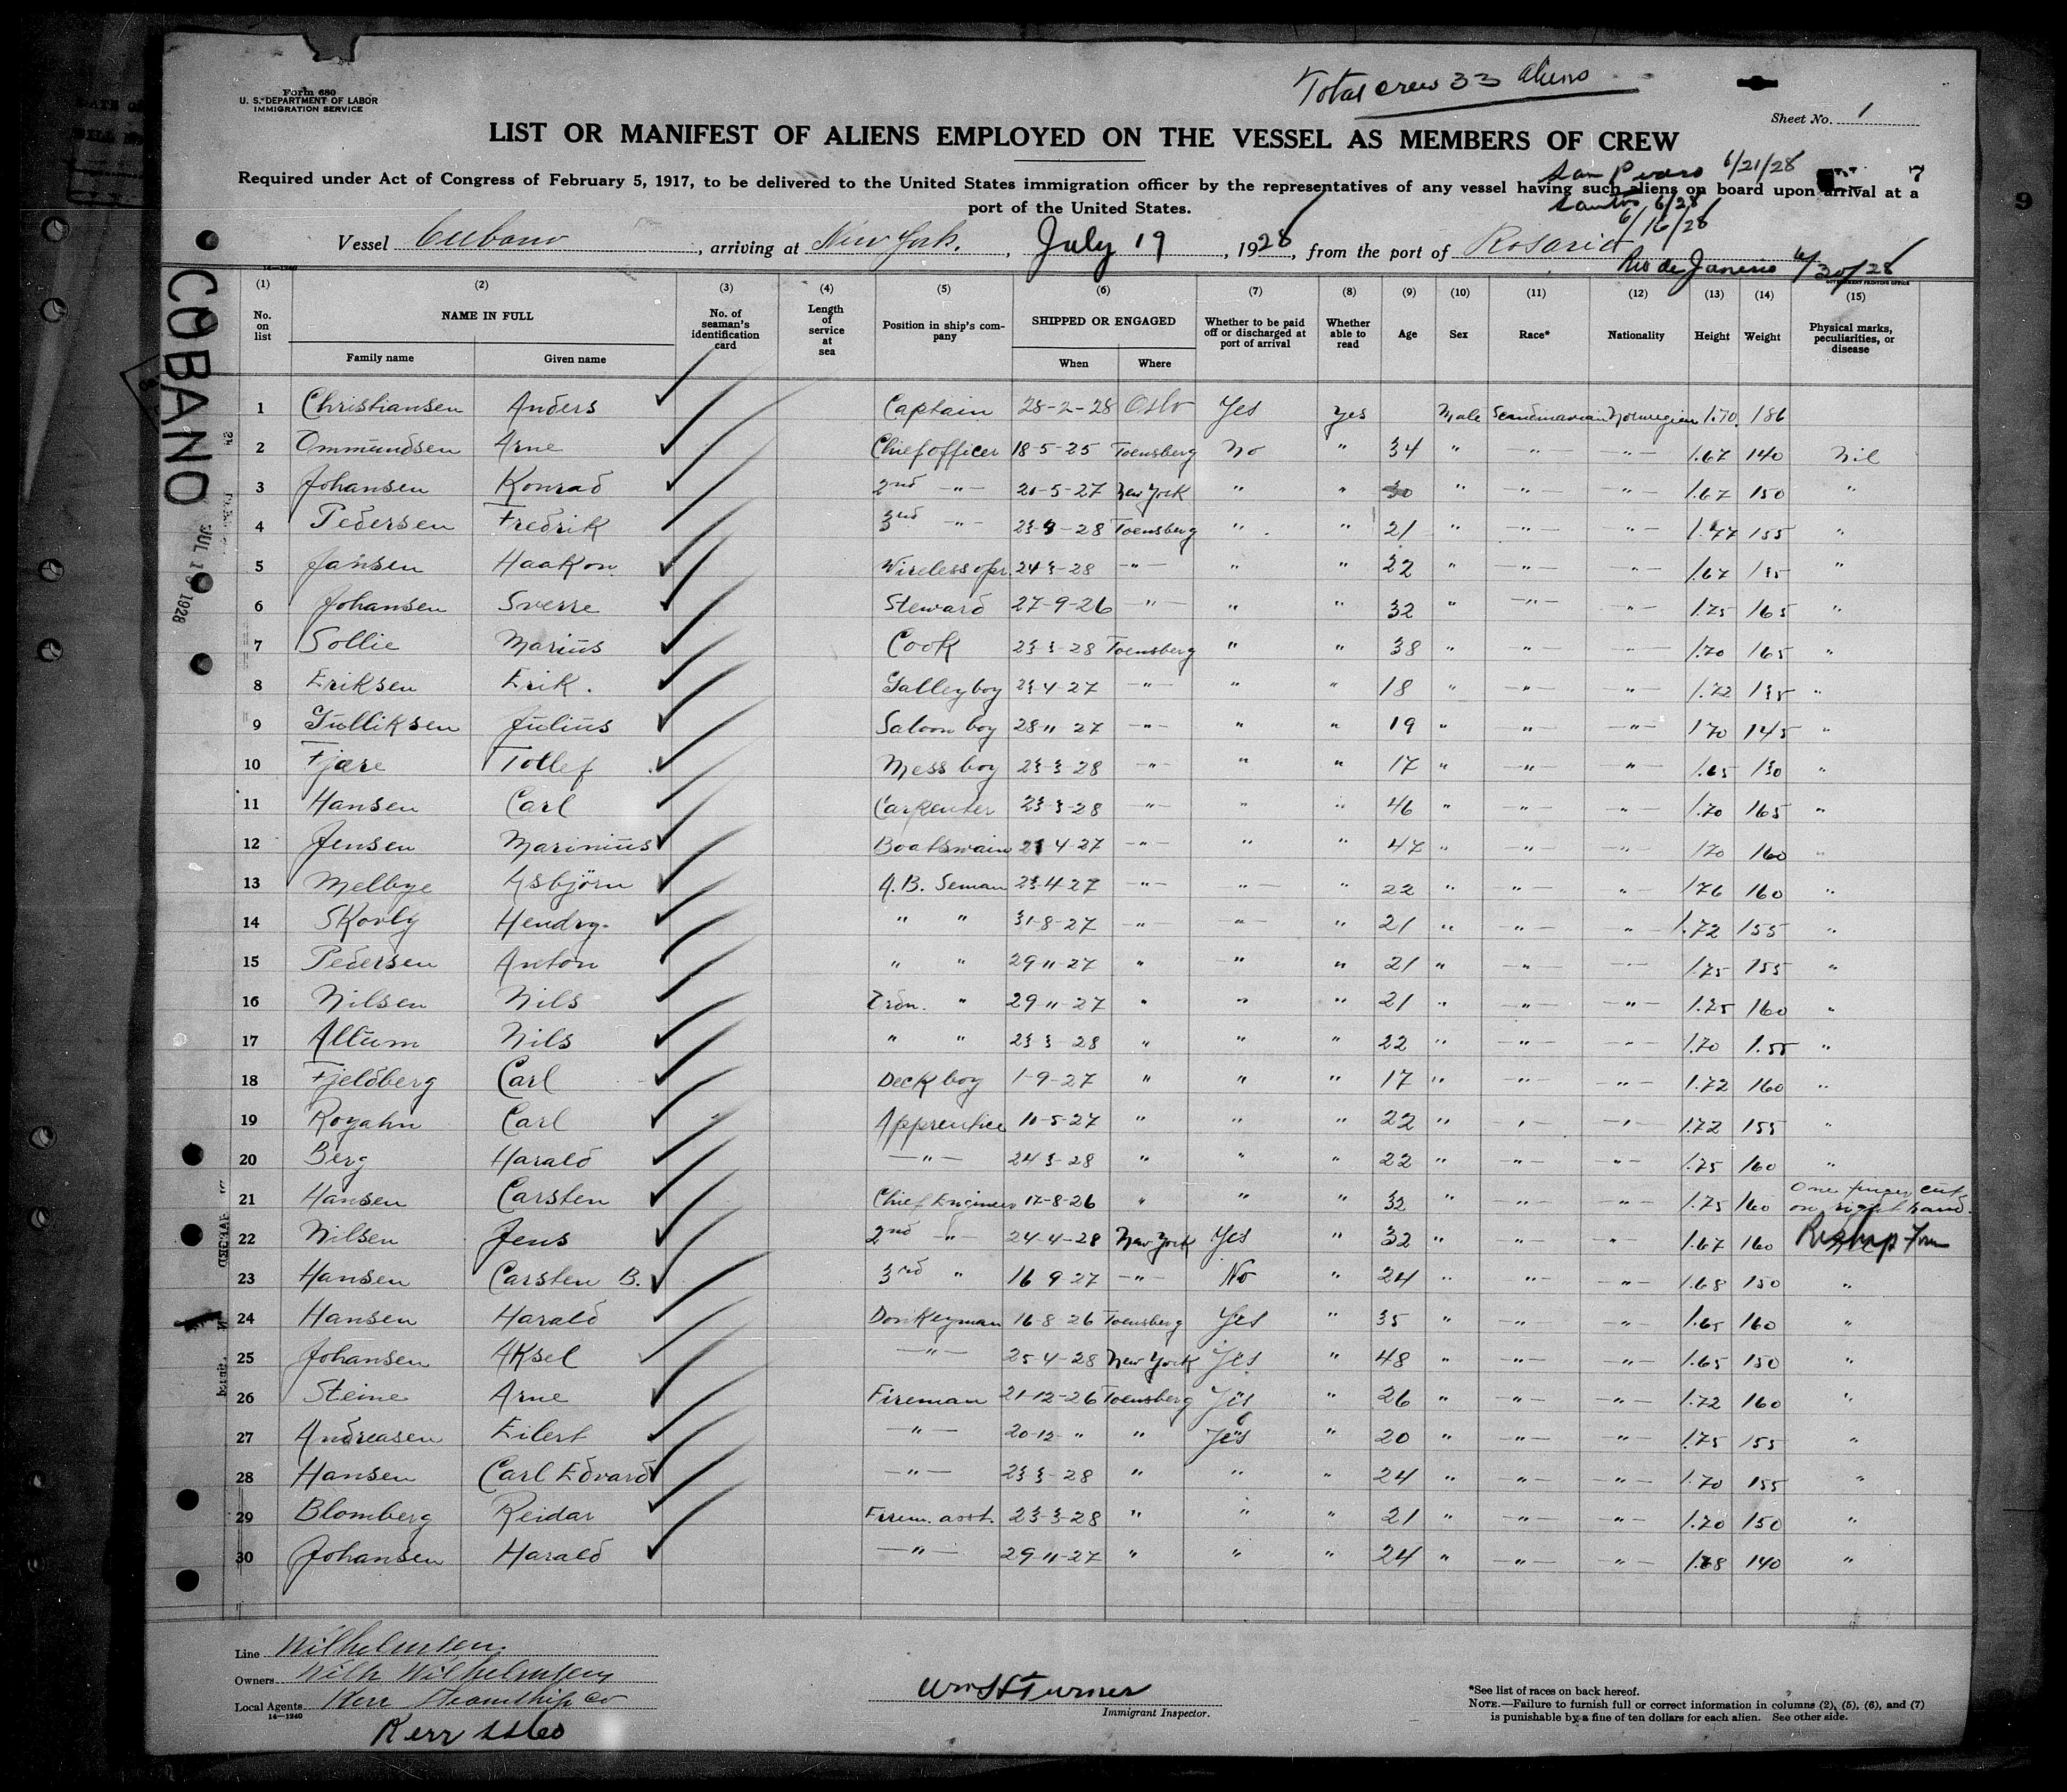 Total crew 33 aliens
Form 680
U. S. DEPARTMENT OF LABOR
IMMIGRATION SERVICE
Sheet No. 1
LIST OR MANIFEST OF ALIENS EMPLOYED ON THE VESSEL AS MEMBERS OF CREW
San Pedro 6/21/28
7
Required under Act of Congress of February 5, 1917, to be delivered to the United States immigration officer by the representatives of any vessel having such aliens on board upon arrival at a
port of the United States.
Santos 6/28
6/16/28
Vessel Cubano, arriving at New York, July 19, 1928, from the port of Rosario
Rio de Janerio 6/30/28
9
COBANO
JUL 19 1928
14—1240
GOVERNMENT PRINTING OFFICE
(1) (2) (3) (4) (5) (6) (7) (8) (9) (10) (11) (12) (13) (14) (15)
No. on list NAME IN FULL No. of seaman's identification card Length of service at sea Position in ship's company SHIPPED OR ENGAGED Whether to be paid off or discharged at port of arrival Whether able to read Age Sex Race* Nationality Height Weight Physical marks, peculiarities, or disease
Family name Given name When Where
1 Christiansen Anders Captain 28-2-28 Oslo Yes Yes Male Scandinavian Norwegian 1.70 186
2 Ommundsen Arne Chief officer 18-5-25 Toensberg No " 34 " " " 1.67 140 Nil
3 Johansen Konrad 2nd " 21-5-27 New York " " 30 " " " 1.67 150 "
4 Pedersen Fredrik 3rd " 28 Toensberg " " 21 " " " 1.77 155 "
5 Jansen Haakon Wireless opr. 24-3-28 " " " 22 " " " 1.67 135 "
6 Johansen Sverre Steward 27-9-26 " " " 32 " " " 1.75 165 "
7 Sollie Marius Cook 23-3-28 Toensberg " " 38 " " " 1.70 165 "
8 Eriksen Erik. Galley boy 23-4-27 " " " 18 " " " 1.72 135 "
9 Gulliksen Julius Saloon boy 28 11 27 " " " 19 " " " 170 145 "
10 Fjære Tollef Mess boy 23-3-28 " " " 17 " " " 1.65 130 "
11 Hansen Carl Carpenter 23-3-28 " " " 46 " " " 1.70 165 "
12 Jensen Marinius Boatswain 23 4-27 " " " 47 " " " 170 160 "
13 Melbye Asbjörn A.B. Seman 23-4 27 " " " 22 " " " 176 160 "
14 Skovly Hendry. " " 31-8-27 " " " 21 " " " 1.72 155 "
15 Pedersen Anton " " 29 11-27 " " " 21 " " " 1.75 155 "
16 Nilsen Nils Ordn. " 29 11-27 " " " 21 " " " 1.75 160 "
17 Allum Nils " " 23 3 28 " " " 22 " " " 1.70 1.55 "
18 Fjeldberg Carl Deck boy 1-9-27 " " " 17 " " " 1.72 160 "
19 Rogahn Carl Apprentice 10-5-27 " " " 22 " " " 1.72 155 "
20 Berg Harald " 24 3-28 " " " 22 " " " 1.75 160 "
21 Hansen Carsten Chief Engineer 17-8-26 " " " 32 " " " 1.75 160 One finger cut on right hand.
22 Nilsen Jens 2nd " 24-4-28 New York Yes " 32 " " " 1.67 160
23 Hansen Carsten B. 3rd " 16 9 27 " No " 24 " " " 1.68 150 "
24 Hansen Harald Donkeyman 16-8 26 Toensberg Yes " 35 " " " 1.65 160 "
25 Johansen Aksel " 25 4-28 New York Yes " 48 " " " 1.65 150 "
26 Steine Arne Fireman 21-12-26 Toensberg Yes " 26 " " " 1.72 160 "
27 Andreasen Eilert " 20-12 " " Yes " 20 " " " 1.75 155 "
28 Hansen Carl Edvard " 23 3-28 " " " 24 " " " 1.70 155 "
29 Blomberg Reidar Firem. asst. 23-3-28 " " " 21 " " " 1.70 150 "
30 Johansen Harald " 29 11-27 " " " 24 " " " 1.68 140 "
Line Wilhelmsen
Owners Wilh Wilhelmsen
Local Agents Kerr Steamship Co
14—1240
Kerr SS Co
Wm H Turner
Immigrant Inspector.
*See list of races on back hereof.
NOTE.—Failure to furnish full or correct information in columns (2), (5), (6), and (7)
is punishable by a fine of ten dollars for each alien. See other side.